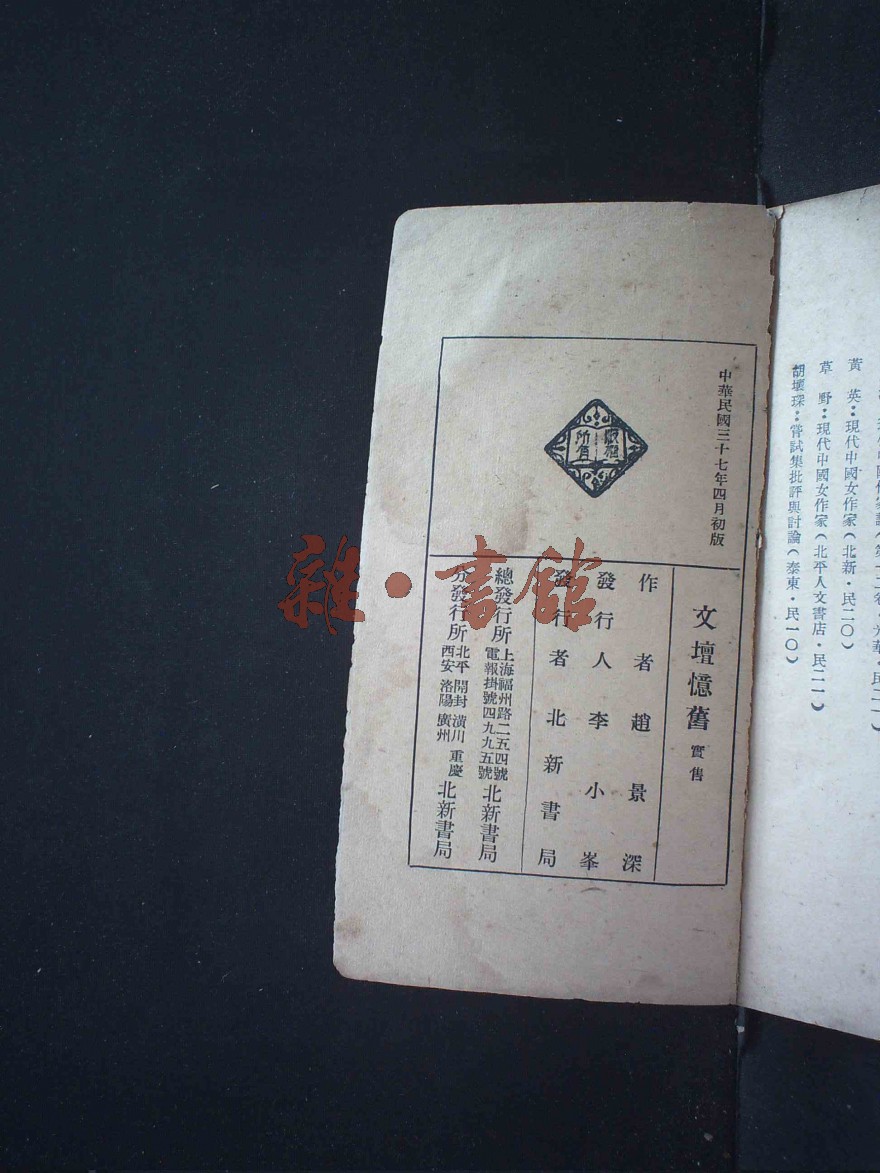 黃　英：現代中國女作家（北新·民二〇）
草　野：現代中國女作家（北平人文書店·民二一）
胡懷琛：嘗試集批評與討論（泰東·民一〇）
中華民國三十七年四月初版
版權所有
文壇憶舊 實售
作者 趙景深
發行人 李小峯
發行者 北新書局
總發行所 上海福州路二五四號 電報掛號四九九五號 北新書局
分發行所 北平 開封 潢川 重慶 西安 洛陽 廣州 北新書局
雜·書館